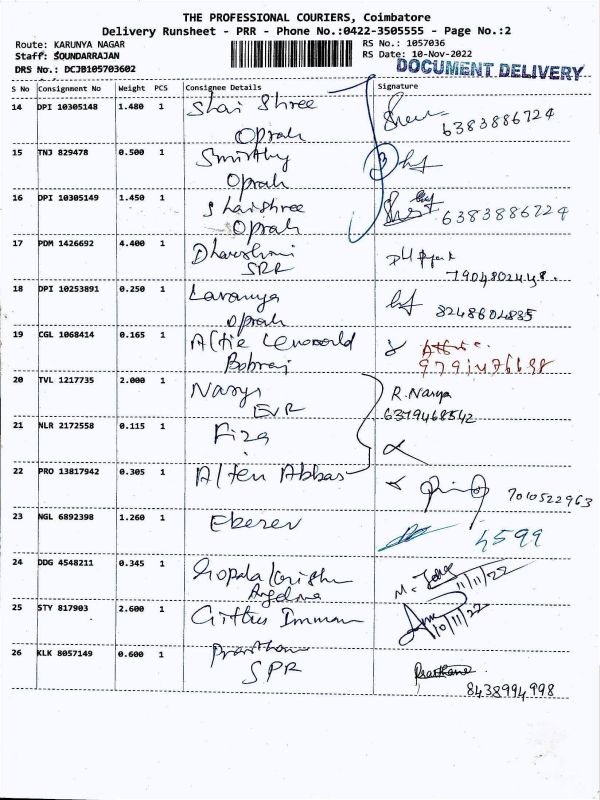 THE PROFESSIONAL COURIERS, Coimbatore
Delivery Runsheet - PRR - Phone No.:0422-3505555 - Page No.:2
Route: KARUNYA NAGAR
RS No.: 1057036
Staff: SOUNDARRAJAN
RS Date: 10-Nov-2022
DRS No.: DCJB105703602
DOCUMENT DELIVERY
S No Consignment No Weight PCS Consignee Details Signature
14 DPI 10305148 1.480 1 Shai Shree
Oprah 6383886724
15 TNJ 829478 0.500 1 Smirthy
Oprah
16 DPI 10305149 1.450 1 Shaishree
Oprah 6383886724
17 PDM 1426692 4.400 1 Dharshini
SRR
18 DPI 10253891 0.250 1 Lavanya
Oprah 8248604835
19 CGL 1068414 0.165 1
Bobraj
20 TVL 1217735 2.000 1 Nasys R. Nasya
EVR 6379468542
21 NLR 2172558 0.115 1 Fiza
22 PRO 13817942 0.305 1 Alten Abbas
7010522963
23 NGL 6892398 1.260 1 Ebezer 4599
24 DDG 4548211 0.345 1 Gopala
11/11/22
25 STY 817903 2.600 1 Immam
10/11/22
26 KLK 8057149 0.600 1 Prarthana
SPR Prarthana
8438994998